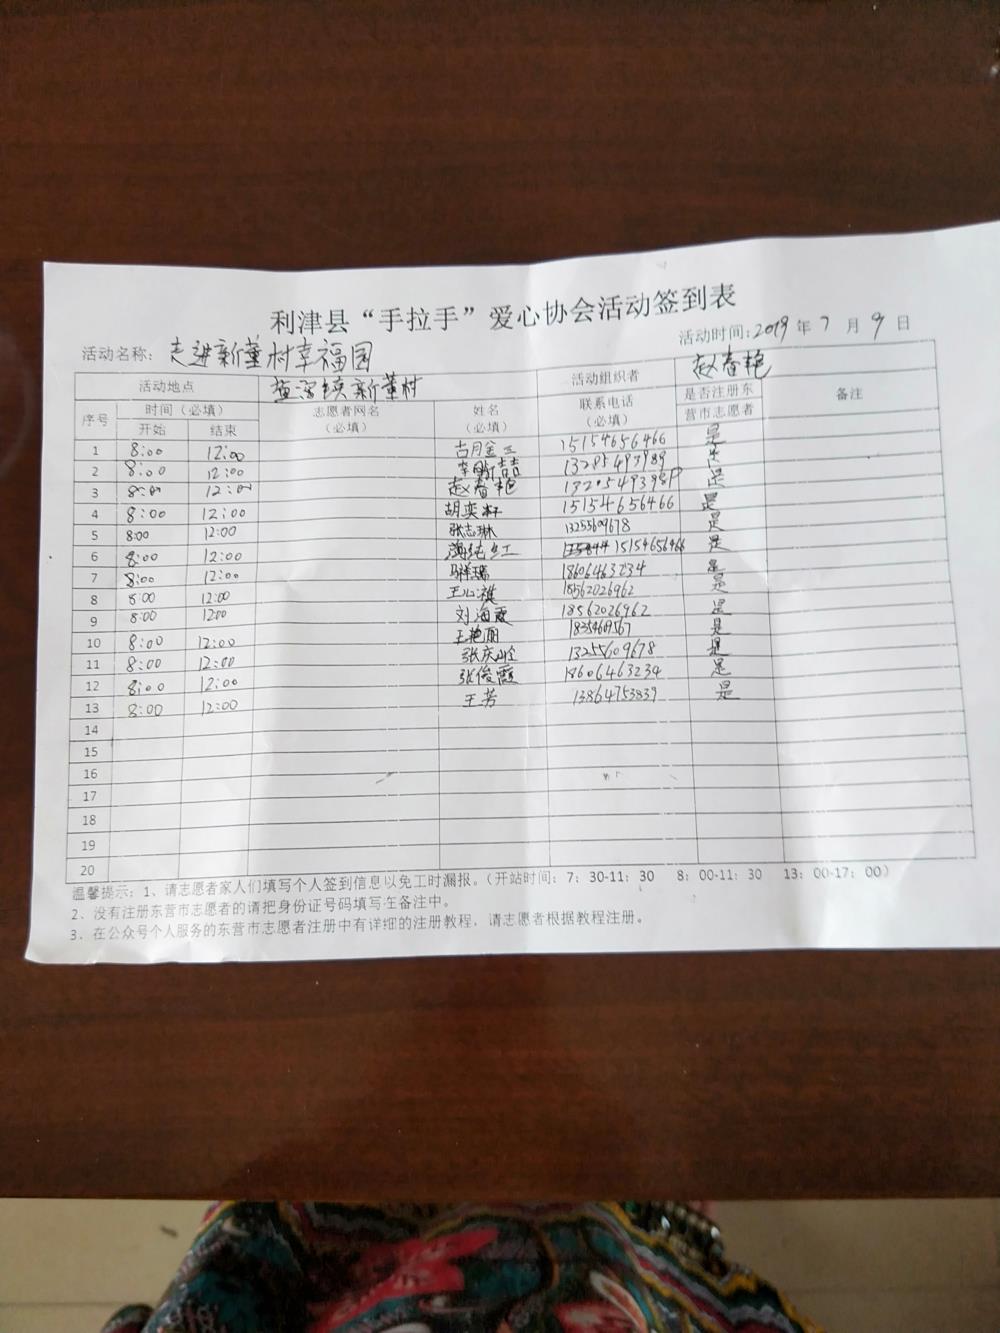 利津县“手拉手”爱心协会活动签到表
活动名称：走进新董村幸福园 活动时间:2019年7月9日
活动地点 新董村 活动组织者 赵春艳
序号 时间（必填） 志愿者网名（必填） 姓名（必填） 联系电话（必填） 是否注册东营市志愿者 备注
开始 结束
1 8:00 12:00 15154656466 是
2 8:00 12:00 是
3 8:00 12:00 赵春艳 是
4 8:00 12:00 胡奕 15154656466 是
5 8:00 12:00 张志琳 13255609678 是
6 8:00 12:00 15154656466 是
7 8:00 12:00 马祥瑞 18606463234 是
8 8:00 12:00 王心祺 18562026962 是
9 8:00 12:00 刘海霞 18562026962 是
10 8:00 12:00 王艳丽 是
11 8:00 12:00 张庆 13255609678 是
12 8:00 12:00 张俊霞 18606463234 是
13 8:00 12:00 王芳 13864753839 是
14
15
16
17
18
19
20
温馨提示：1、请志愿者家人们填写个人签到信息以免工时漏报。（开站时间：7：30-11：30 8：00-11：30 13：00-17：00）
2、没有注册东营市志愿者的请把身份证号码填写在备注中。
3、在公众号个人服务的东营市志愿者注册中有详细的注册教程，请志愿者根据教程注册。